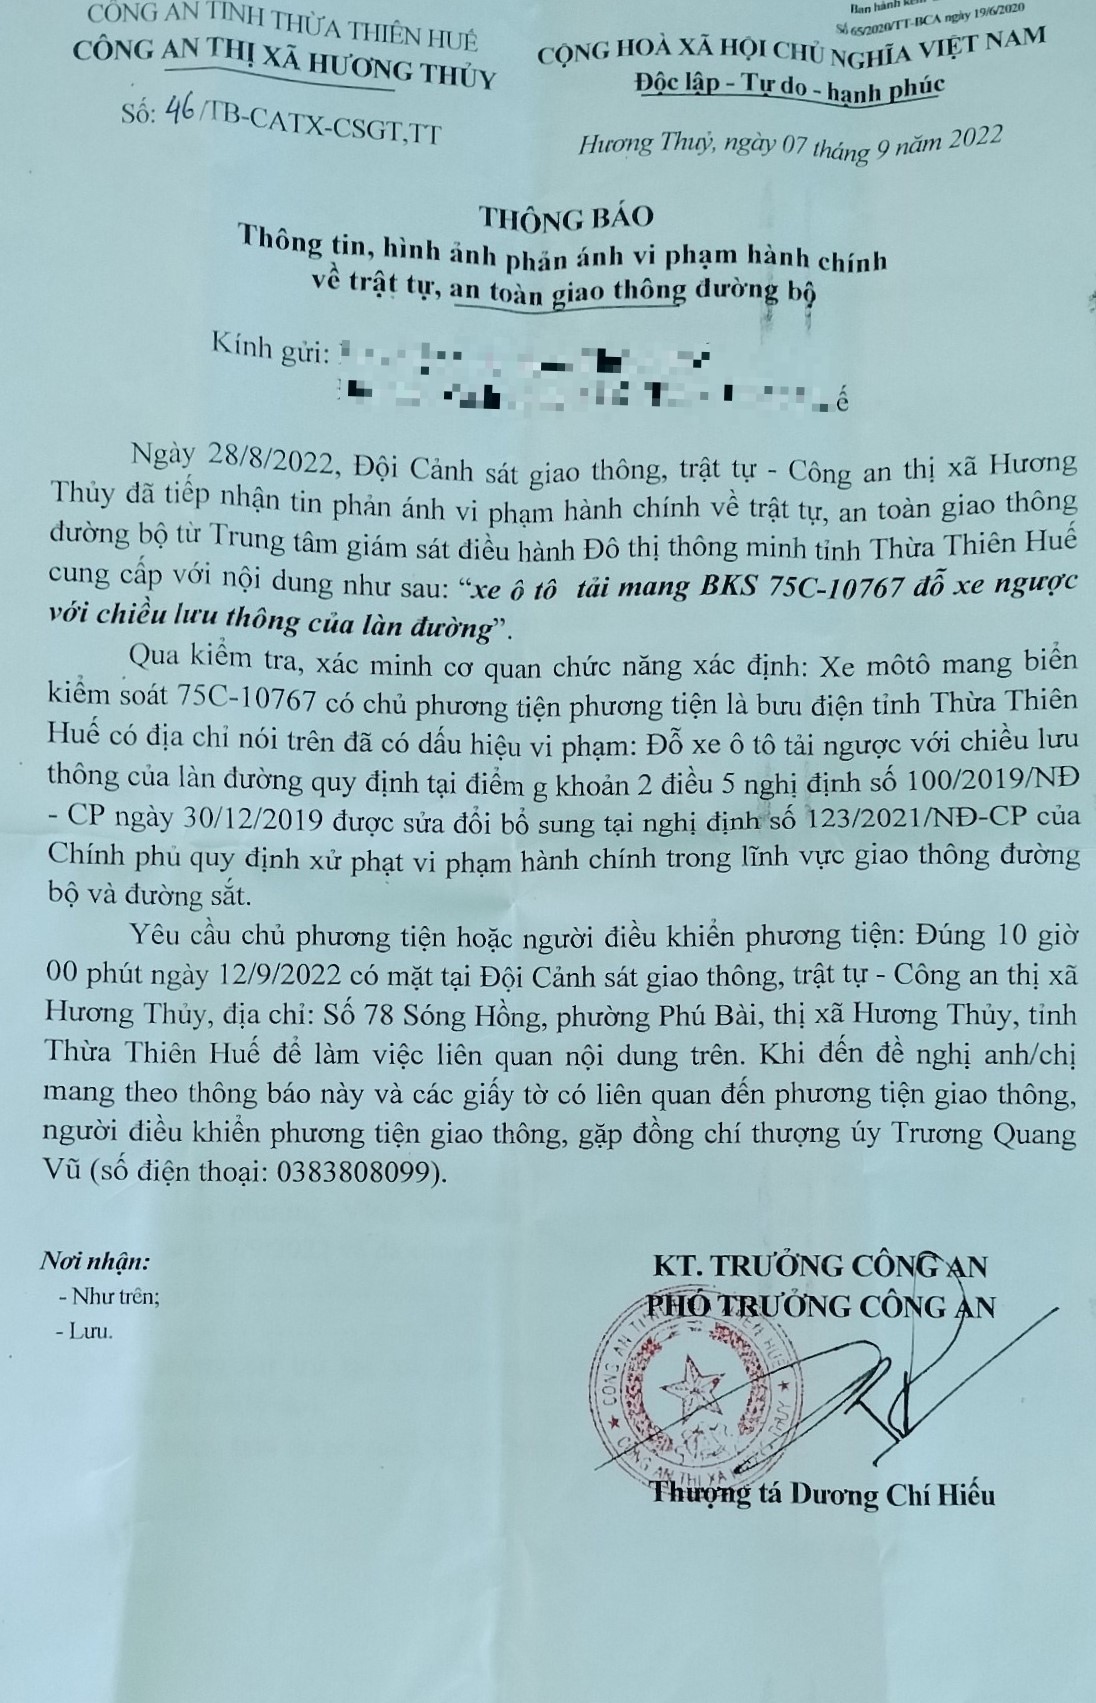 CÔNG AN TỈNH THỪA THIÊN HUẾ
CÔNG AN THỊ XÃ HƯƠNG THỦY
Số: 46/TB-CATX-CSGT,TT
Ban hành kèm
Số 65/2020/TT-BCA ngày 19/6/2020
CỘNG HOÀ XÃ HỘI CHỦ NGHĨA VIỆT NAM
Độc lập - Tự do - hạnh phúc
Hương Thuỷ, ngày 07 tháng 9 năm 2022
THÔNG BÁO
Thông tin, hình ảnh phản ánh vi phạm hành chính
về trật tự, an toàn giao thông đường bộ
Kính gửi:
ế
Ngày 28/8/2022, Đội Cảnh sát giao thông, trật tự - Công an thị xã Hương
Thủy đã tiếp nhận tin phản ánh vi phạm hành chính về trật tự, an toàn giao thông
đường bộ từ Trung tâm giám sát điều hành Đô thị thông minh tỉnh Thừa Thiên Huế
cung cấp với nội dung như sau: “xe ô tô tải mang BKS 75C-10767 đỗ xe ngược
với chiều lưu thông của làn đường”.
Qua kiểm tra, xác minh cơ quan chức năng xác định: Xe môtô mang biển
kiểm soát 75C-10767 có chủ phương tiện phương tiện là bưu điện tỉnh Thừa Thiên
Huế có địa chỉ nói trên đã có dấu hiệu vi phạm: Đỗ xe ô tô tải ngược với chiều lưu
thông của làn đường quy định tại điểm g khoản 2 điều 5 nghị định số 100/2019/NĐ
- CP ngày 30/12/2019 được sửa đổi bổ sung tại nghị định số 123/2021/NĐ-CP của
Chính phủ quy định xử phạt vi phạm hành chính trong lĩnh vực giao thông đường
bộ và đường sắt.
Yêu cầu chủ phương tiện hoặc người điều khiển phương tiện: Đúng 10 giờ
00 phút ngày 12/9/2022 có mặt tại Đội Cảnh sát giao thông, trật tự - Công an thị xã
Hương Thủy, địa chỉ: Số 78 Sóng Hồng, phường Phú Bài, thị xã Hương Thủy, tỉnh
Thừa Thiên Huế để làm việc liên quan nội dung trên. Khi đến đề nghị anh/chị
mang theo thông báo này và các giấy tờ có liên quan đến phương tiện giao thông,
người điều khiển phương tiện giao thông, gặp đồng chí thượng úy Trương Quang
Vũ (số điện thoại: 0383808099).
Nơi nhận:
- Như trên;
- Lưu.
KT. TRƯỞNG CÔNG AN
PHÓ TRƯỞNG CÔNG AN
CÔNG AN THỊ XÃ
Thượng tá Dương Chí Hiếu